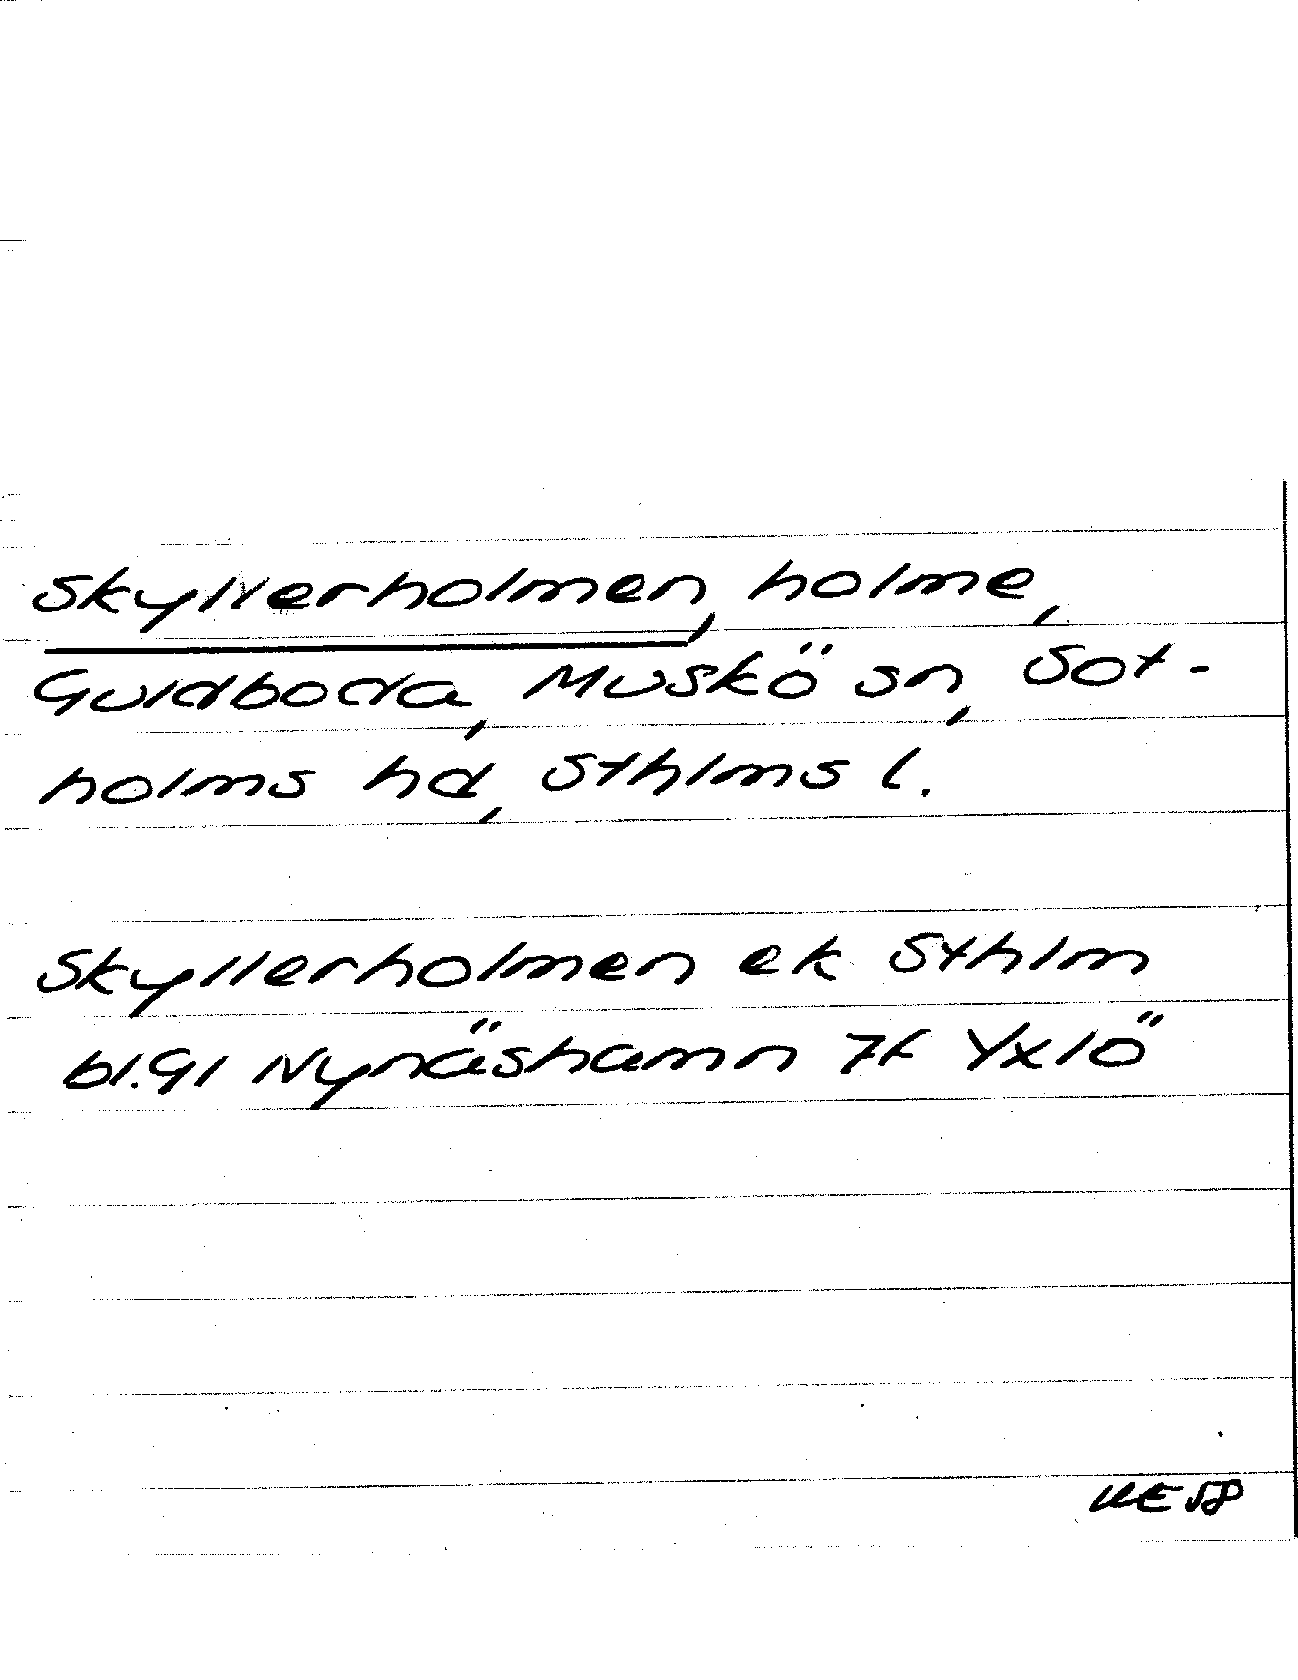 Skyllerholmen, holme,
Guldboda, Muskö sn, Sot-
holms hd, Sthlms l.
Skyllerholmen ek Sthlm
bl.91 Nynäshamn 7f Yxlö